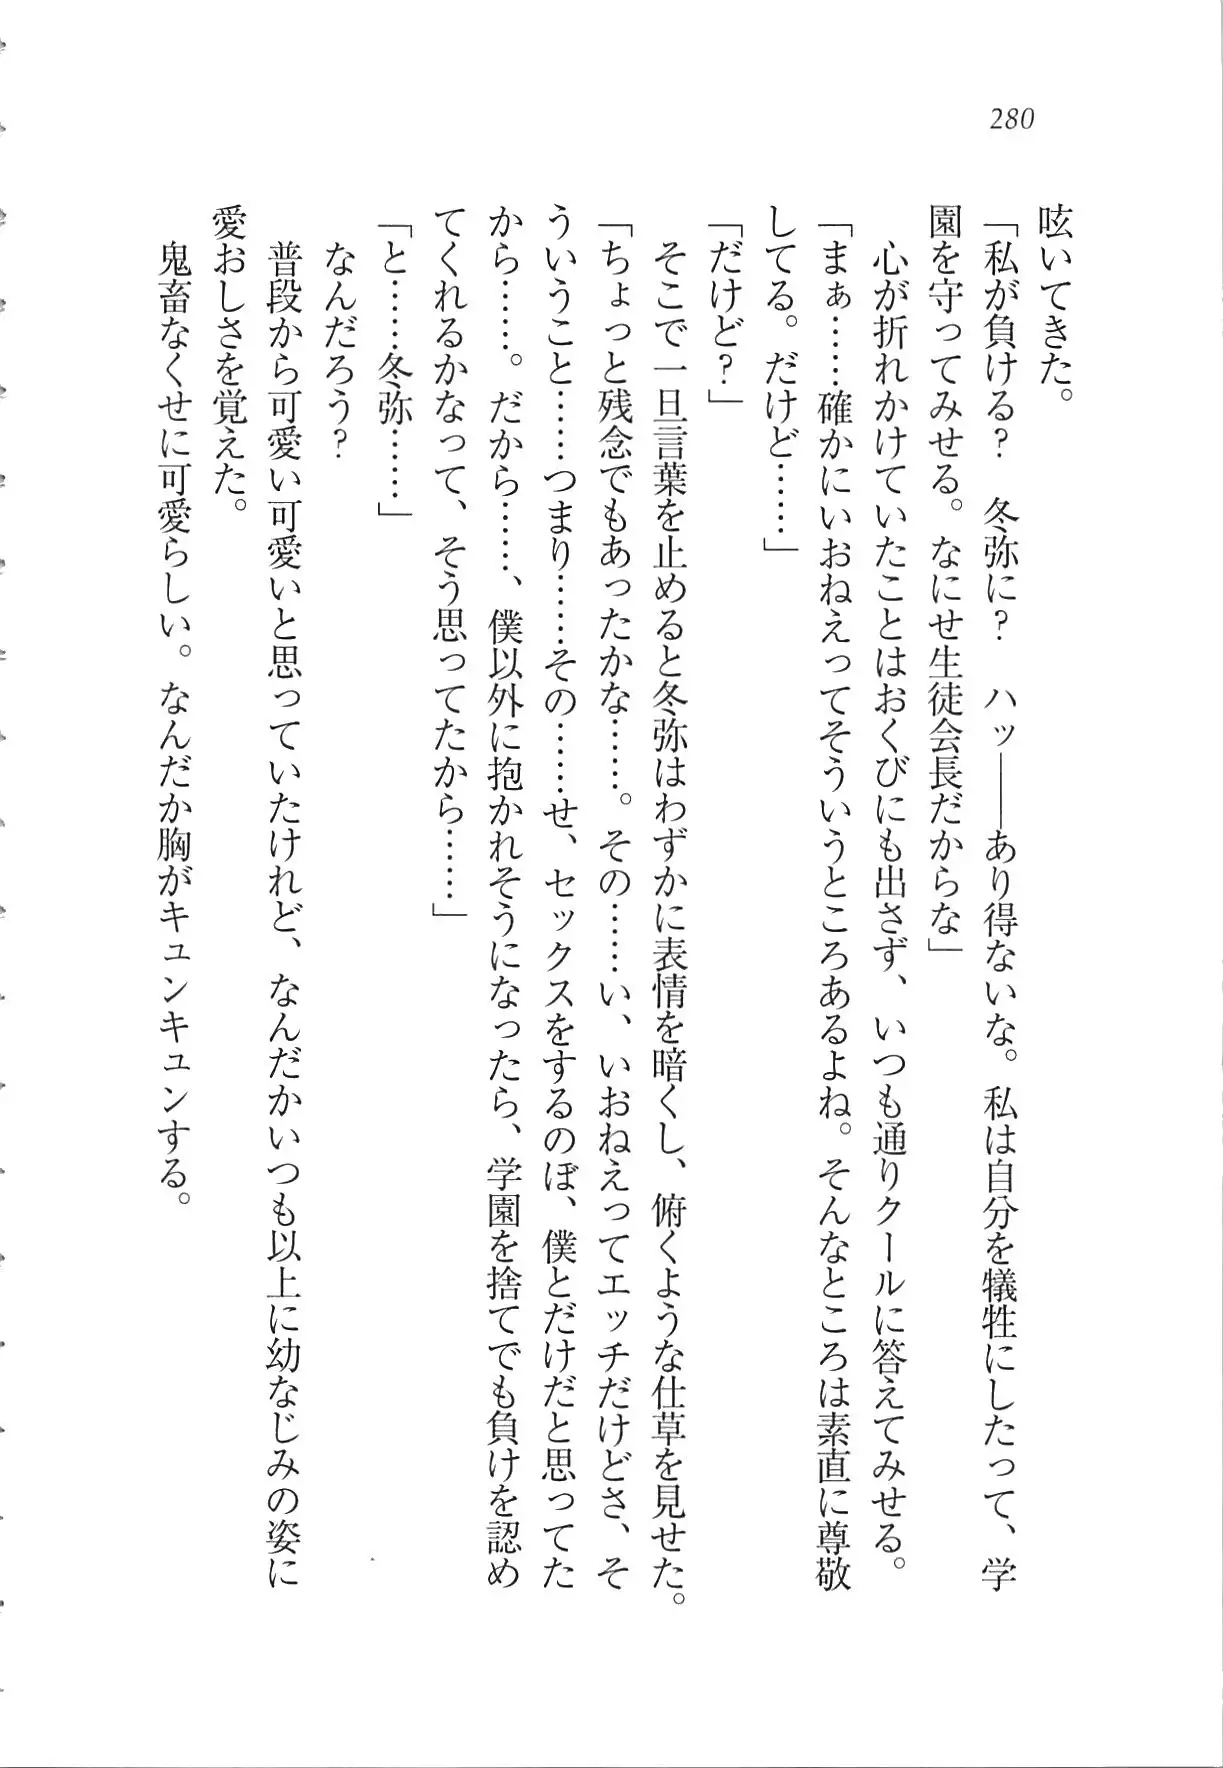 280
呟いてきた。
「私が負ける？　冬弥に？　ハッ――あり得ないな。私は自分を犠牲にしたって、学
園を守ってみせる。なにせ生徒会長だからな」
　心が折れかけていたことはおくびにも出さず、いつも通りクールに答えてみせる。
「まぁ……確かにいおねえってそういうところあるよね。そんなところは素直に尊敬
してる。だけど……」
「だけど？」
　そこで一旦言葉を止めると冬弥はわずかに表情を暗くし、俯くような仕草を見せた。
「ちょっと残念でもあったかな……。その……い、いおねえってエッチだけどさ、そ
ういうこと……つまり……その……せ、セックスをするのぼ、僕とだけだと思ってた
から……。だから……、僕以外に抱かれそうになったら、学園を捨ててでも負けを認め
てくれるかなって、そう思ってたから……」
「と……冬弥……」
　なんだろう？
　普段から可愛い可愛いと思っていたけれど、なんだかいつも以上に幼なじみの姿に
愛おしさを覚えた。
　鬼畜なくせに可愛らしい。なんだか胸がキュンキュンする。